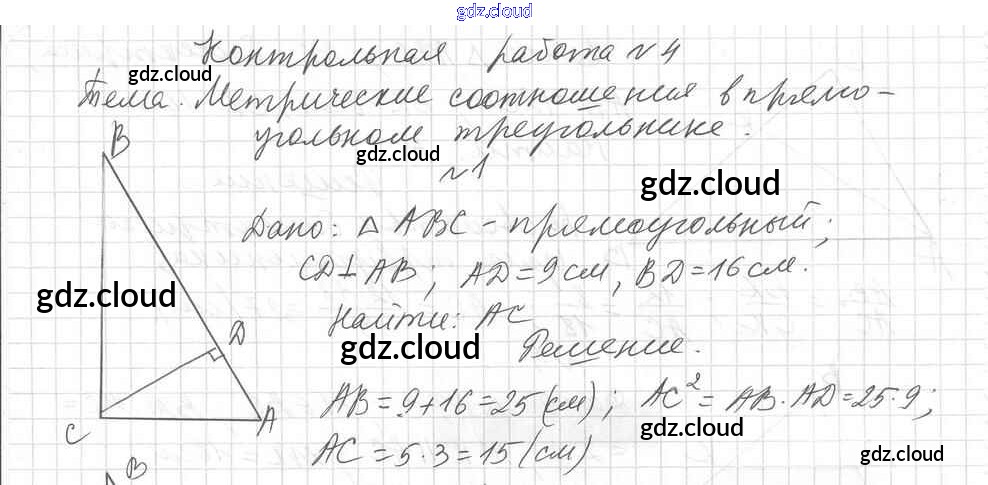 gdz.cloud
Контрольная работа №4
gdz.cloud
Тема. Метрические соотношения в прямо-
угольном треугольнике.
gdz.cloud
B
№1
gdz.cloud
Дано: △ABC - прямоугольный;
CD⊥AB; AD=9 см, BD=16 см.
gdz.cloud
Найти: AC
D
gdz.cloud
Решение.
AB=9+16=25 (см); AC²=AB·AD=25·9;
gdz.cloud
C A
AC=5·3=15 (см)
gdz.cloud
B